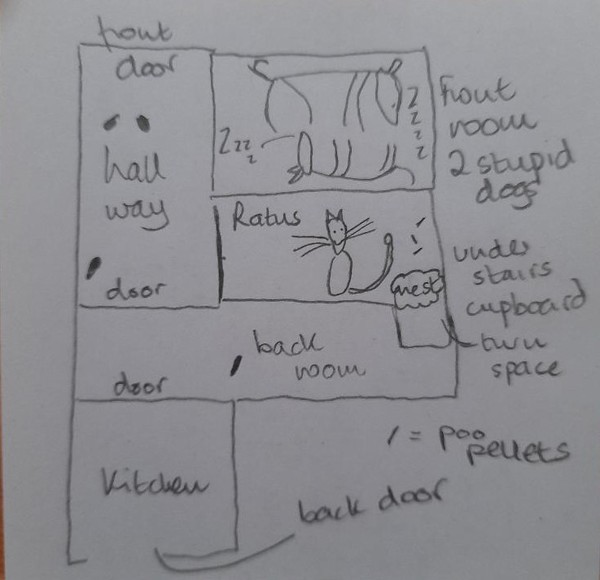 front
door
hall
way
door
zzz
z
z
z
z
z
front
room
2 stupid
dogs
Ratus
nest
under
stairs
cupboard
turn
space
back
room
door
/ = poo
pellets
Kitchen
back door